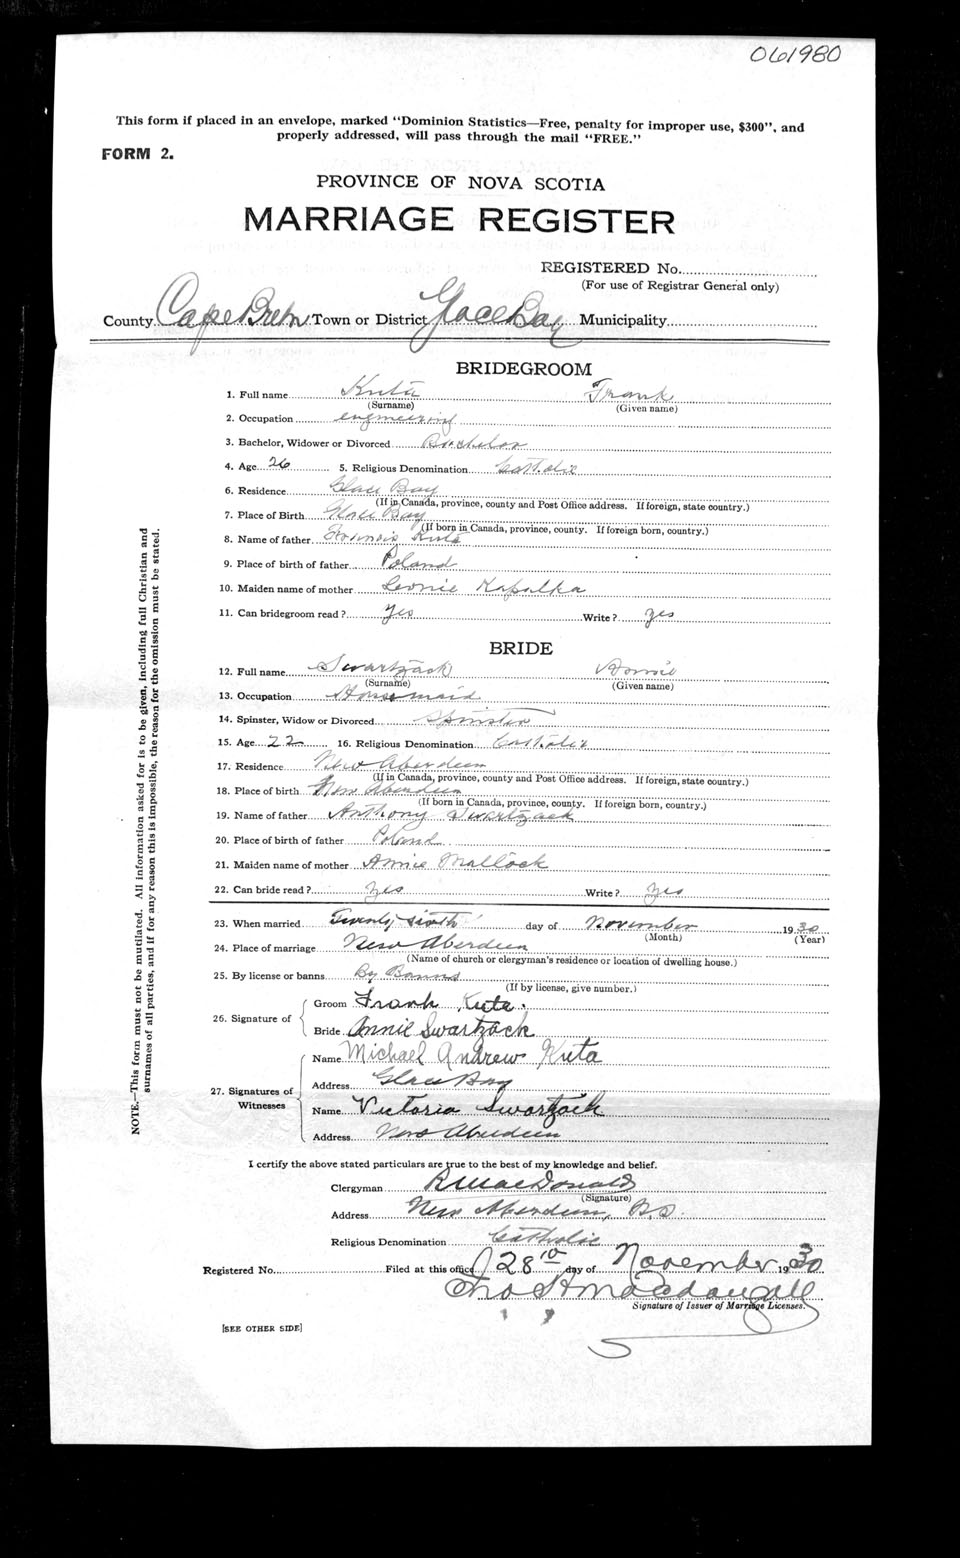 061980
This form if placed in an envelope, marked "Dominion Statistics—Free, penalty for improper use, $300", and
properly addressed, will pass through the mail "FREE."
FORM 2.
PROVINCE OF NOVA SCOTIA
MARRIAGE REGISTER
REGISTERED No.
(For use of Registrar General only)
County Cape Breton Town or District Glace Bay Municipality
BRIDEGROOM
1. Full name Kuta Frank
(Surname) (Given name)
2. Occupation engineering
3. Bachelor, Widower or Divorced Bachelor
4. Age 26 5. Religious Denomination Catholic
6. Residence Glace Bay
(If in Canada, province, county and Post Office address. If foreign, state country.)
7. Place of Birth Glace Bay
(If born in Canada, province, county. If foreign born, country.)
8. Name of father Francis Kuta
9. Place of birth of father Poland
10. Maiden name of mother Leonie Kapalka
11. Can bridegroom read? Yes Write? Yes
BRIDE
12. Full name Swartzack Annie
(Surname) (Given name)
13. Occupation Housemaid
14. Spinster, Widow or Divorced Spinster
15. Age 22 16. Religious Denomination Catholic
17. Residence New Aberdeen
(If in Canada, province, county and Post Office address. If foreign, state country.)
18. Place of birth New Aberdeen
(If born in Canada, province, county. If foreign born, country.)
19. Name of father Anthony Swartzack
20. Place of birth of father Poland
21. Maiden name of mother Annie Mallock
22. Can bride read? Yes Write? Yes
23. When married Twenty sixth day of November 1930
(Month) (Year)
24. Place of marriage New Aberdeen
(Name of church or clergyman's residence or location of dwelling house.)
25. By license or banns By Banns
(If by license, give number.)
26. Signature of
Groom Frank Kuta.
Bride Annie Swartzack
27. Signatures of Witnesses
Name Michael Andrew Kuta
Address Glace Bay
Name Victoria Swartzack
Address New Aberdeen
I certify the above stated particulars are true to the best of my knowledge and belief.
Clergyman R MacDonald
(Signature)
Address New Aberdeen,
Religious Denomination Catholic
Registered No. Filed at this office 28 day of November 1930
Thos H Macdougall
Signature of Issuer of Marriage Licenses.
[SEE OTHER SIDE]
NOTE.—This form must not be mutilated. All information asked for is to be given, including full Christian and
surnames of all parties, and if for any reason this is impossible, the reason for the omission must be stated.